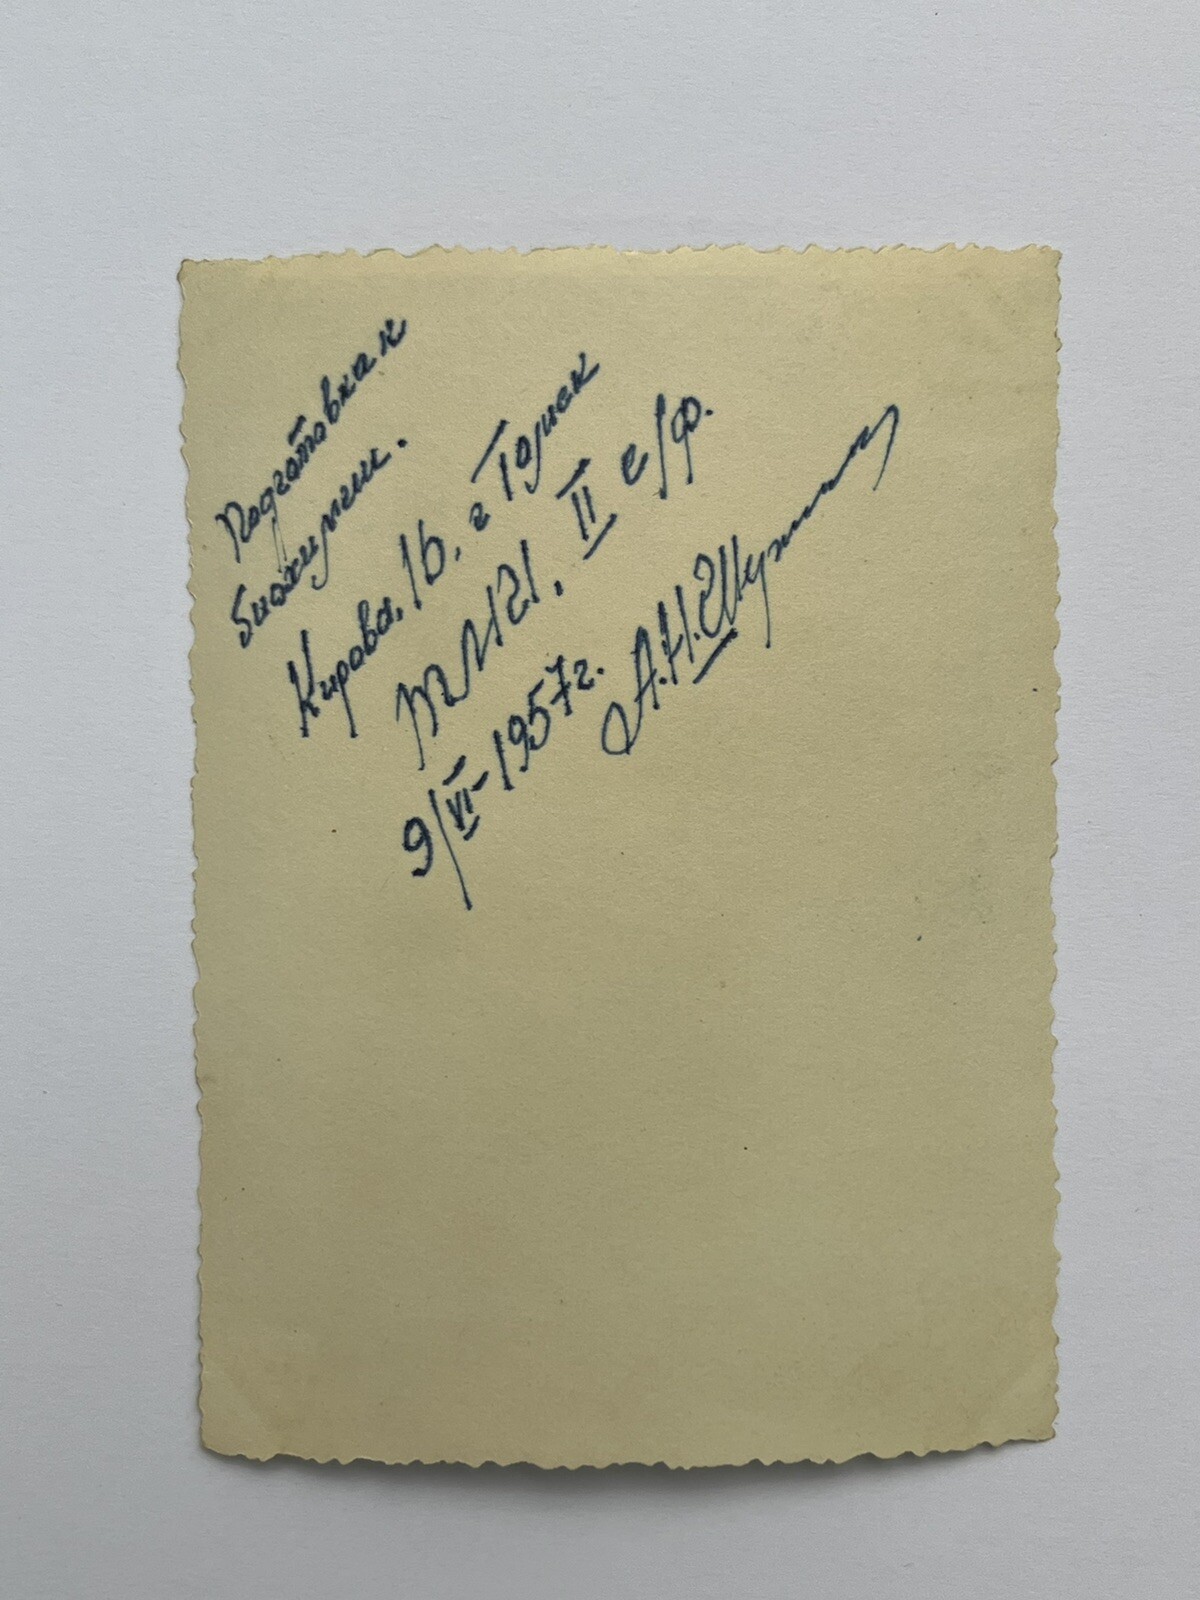 Подготовка к
биохимии.
Кирова, 16. г Томск
ТМИ. II с/ф.
9/VI-1957г.
А.Н.